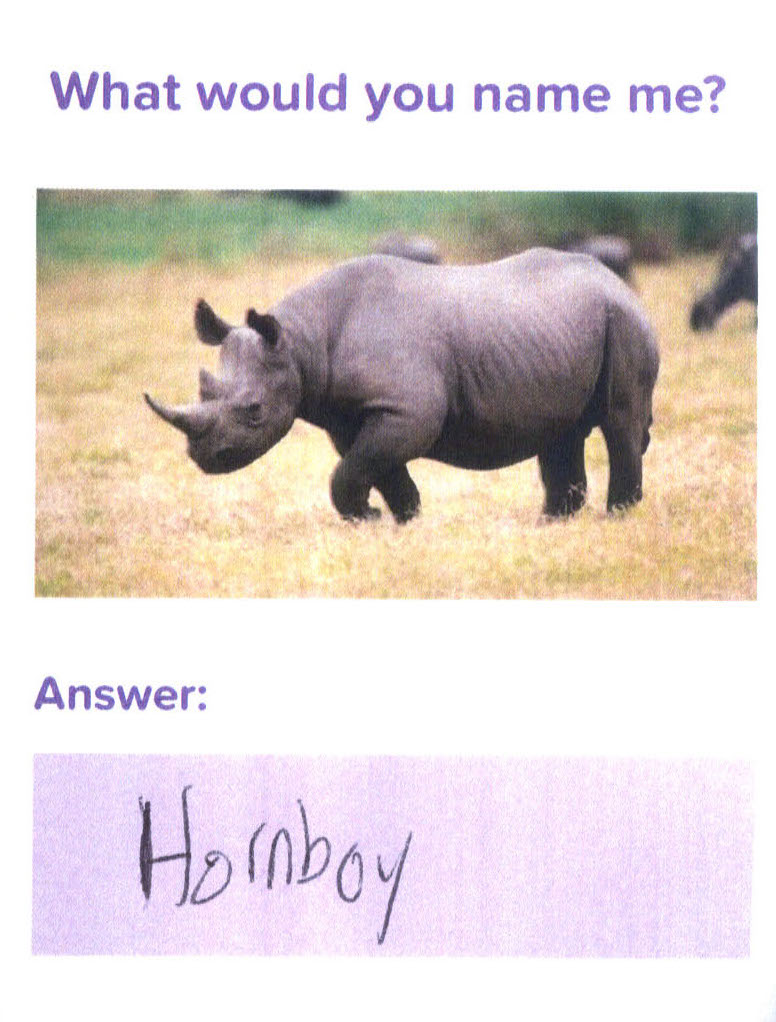 What would you name me?
Answer:
Hornboy